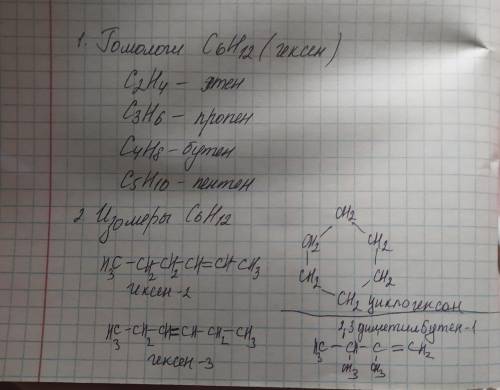 1. Гомологи C6H12 (гексен)
C2H4 – этен
C3H6 – пропен
C4H8 – бутен
C5H10 – пентен
2. Изомеры C6H12
H3C – CH2 – CH2 – CH = CH – CH3
гексен-2
H3C – CH2 – CH = CH – CH2 – CH3
гексен-3
CH2
CH2 CH2
CH2 CH2
CH2 циклогексан
2,3 диметилбутен-1
H3C – CH – C = CH2
CH3 CH3